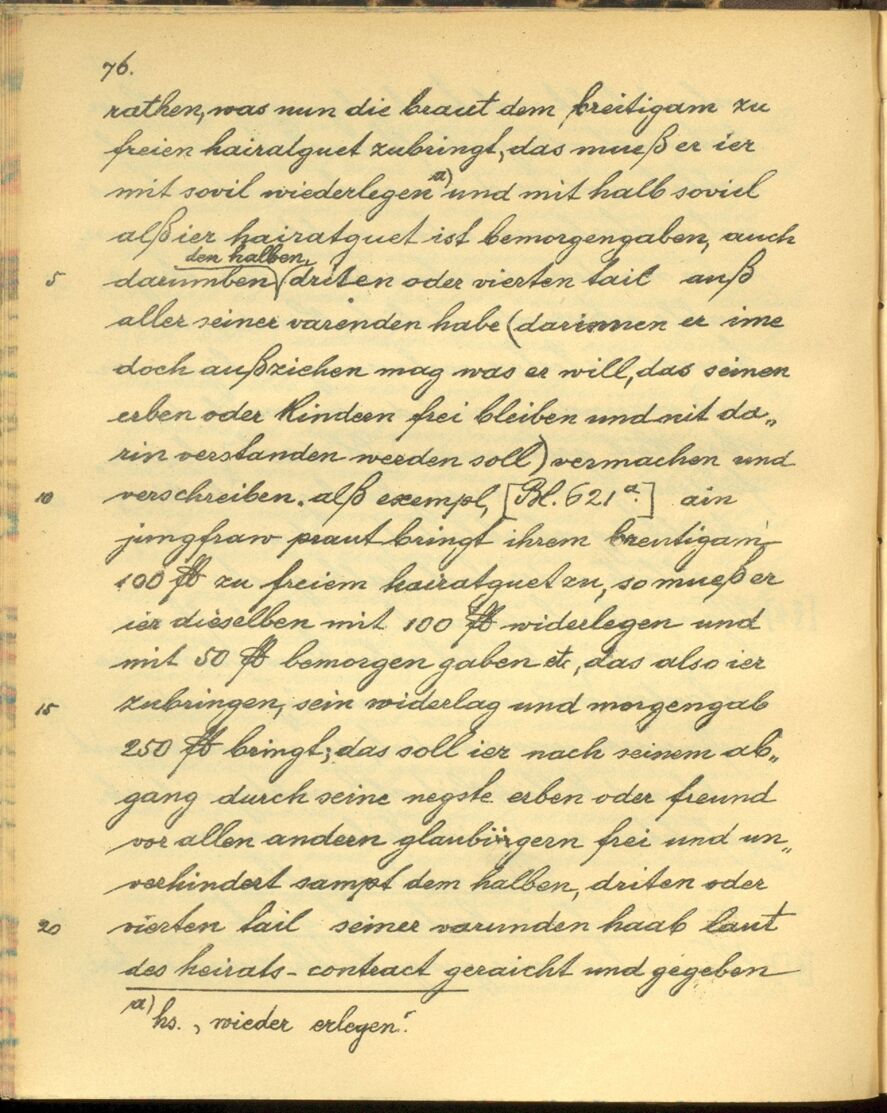 76.
rathen, was nun die braut dem breitigam zu
freien hairatguet zubringt, das mueß er ier
mit sovil wiederlegen a) und mit halb soviel
alß ier hairatguet ist bemorgengaben, auch
den halben,
5 darumben driten oder vierten tail auß
aller seiner varenden habe (darinnen er ime
doch außziehen mag was er will, das seinen
erben oder Kindern frei bleiben und nit da„
rin verstanden werden soll) vermachen und
10 verschreiben. alß exempl, [Bl. 621 a.] ain
jungfraw praut bringt ihrem breutigam
100 ℔ zu freiem hairatguet zu, so mueß er
ier dieselben mit 100 ℔ widerlegen und
mit 50 ℔ bemorgen gaben etc, das also ier
15 zubringen, sein widerlag und morgengab
250 ℔ bringt; das soll ier nach seinem ab„
gang durch seine negste erben oder freund
vor allen andern glaubirgern frei und un„
verhindert sampt dem halben, driten oder
20 vierten tail seiner varunden haab laut
des heirats-contract geraicht und gegeben
a) hs. „wieder erlegen“.